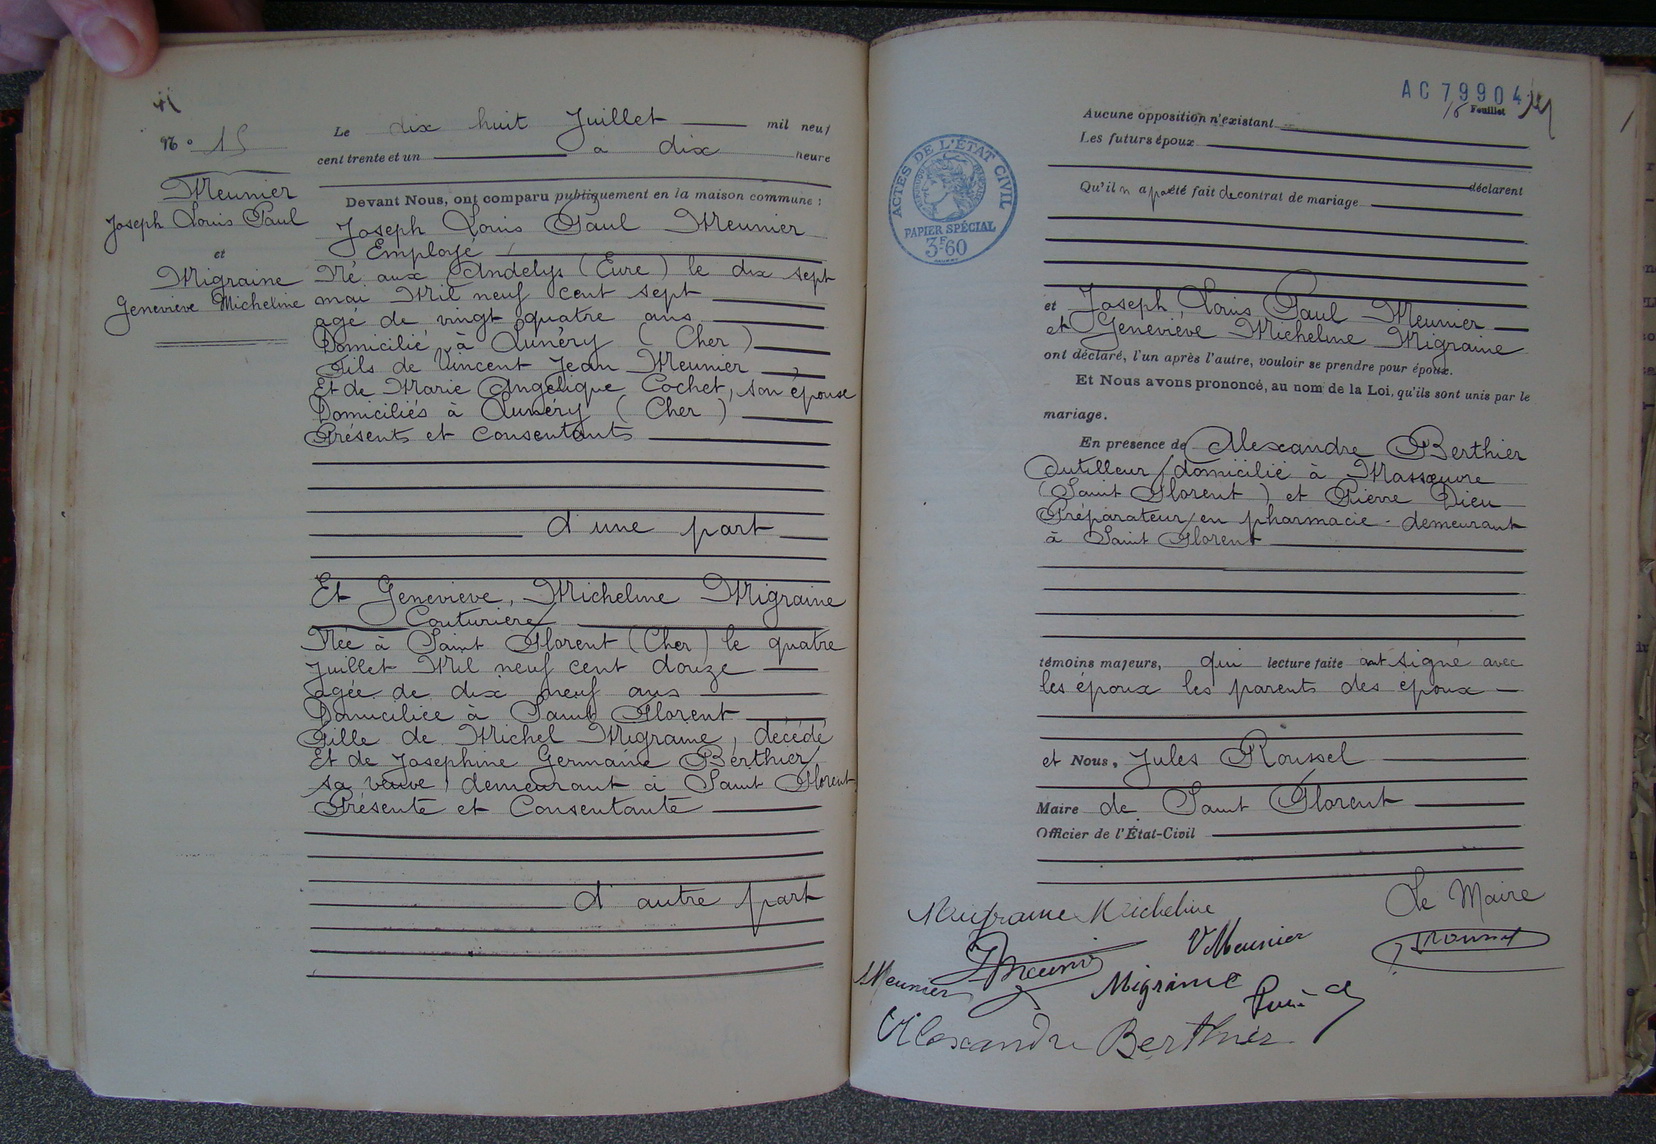 N° 15
Meunier
Joseph Louis Paul
et
Migraine
Geneviève Micheline
Le dix huit Juillet mil neuf
cent trente et un à dix heure
Devant Nous, ont comparu publiquement en la maison commune :
Joseph Louis Paul Meunier
Employé
Né aux Andelys (Eure) le dix sept
mai Mil neuf cent sept
agé de vingt quatre ans
Domicilié à Lunéry (Cher)
Fils de Vincent Jean Meunier
Et de Marie Angélique Cochet, son épouse
Domiciliés à Lunéry (Cher)
Présents et Consentants
d'une part
Et Geneviève, Micheline Migraine
Couturière
Née à Saint Florent (Cher) le quatre
Juillet Mil neuf cent douze
agée de dix neuf ans
Domiciliée à Saint Florent
Fille de Michel Migraine, décédé
Et de Joséphine Germaine Berthier
sa veuve, demeurant à Saint Florent
Présente et Consentante
d'autre part
AC 799904
16 Feuillet
ACTES DE L'ÉTAT CIVIL
PAPIER SPÉCIAL
3F60
Aucune opposition n'existant
Les futurs époux
déclarent
Qu'il n'a pas été fait de contrat de mariage
et Joseph Louis Paul Meunier
et Geneviève Micheline Migraine
ont déclaré, l'un après l'autre, vouloir se prendre pour époux.
Et Nous avons prononcé, au nom de la Loi, qu'ils sont unis par le
mariage.
En presence de Alexandre Berthier
Outilleur, domicilié à Massœuvre
(Saint Florent) et Pierre Dieu
Préparateur en pharmacie demeurant
à Saint Florent
témoins majeurs, qui lecture faite ont signé avec
les époux les parents des époux
et Nous, Jules Roussel
Maire de Saint Florent
Officier de l'État-Civil
Le Maire
Migraine Micheline
V Meunier
Roussel
Meunier
Meunier
Migraine
Alexandre Berthier